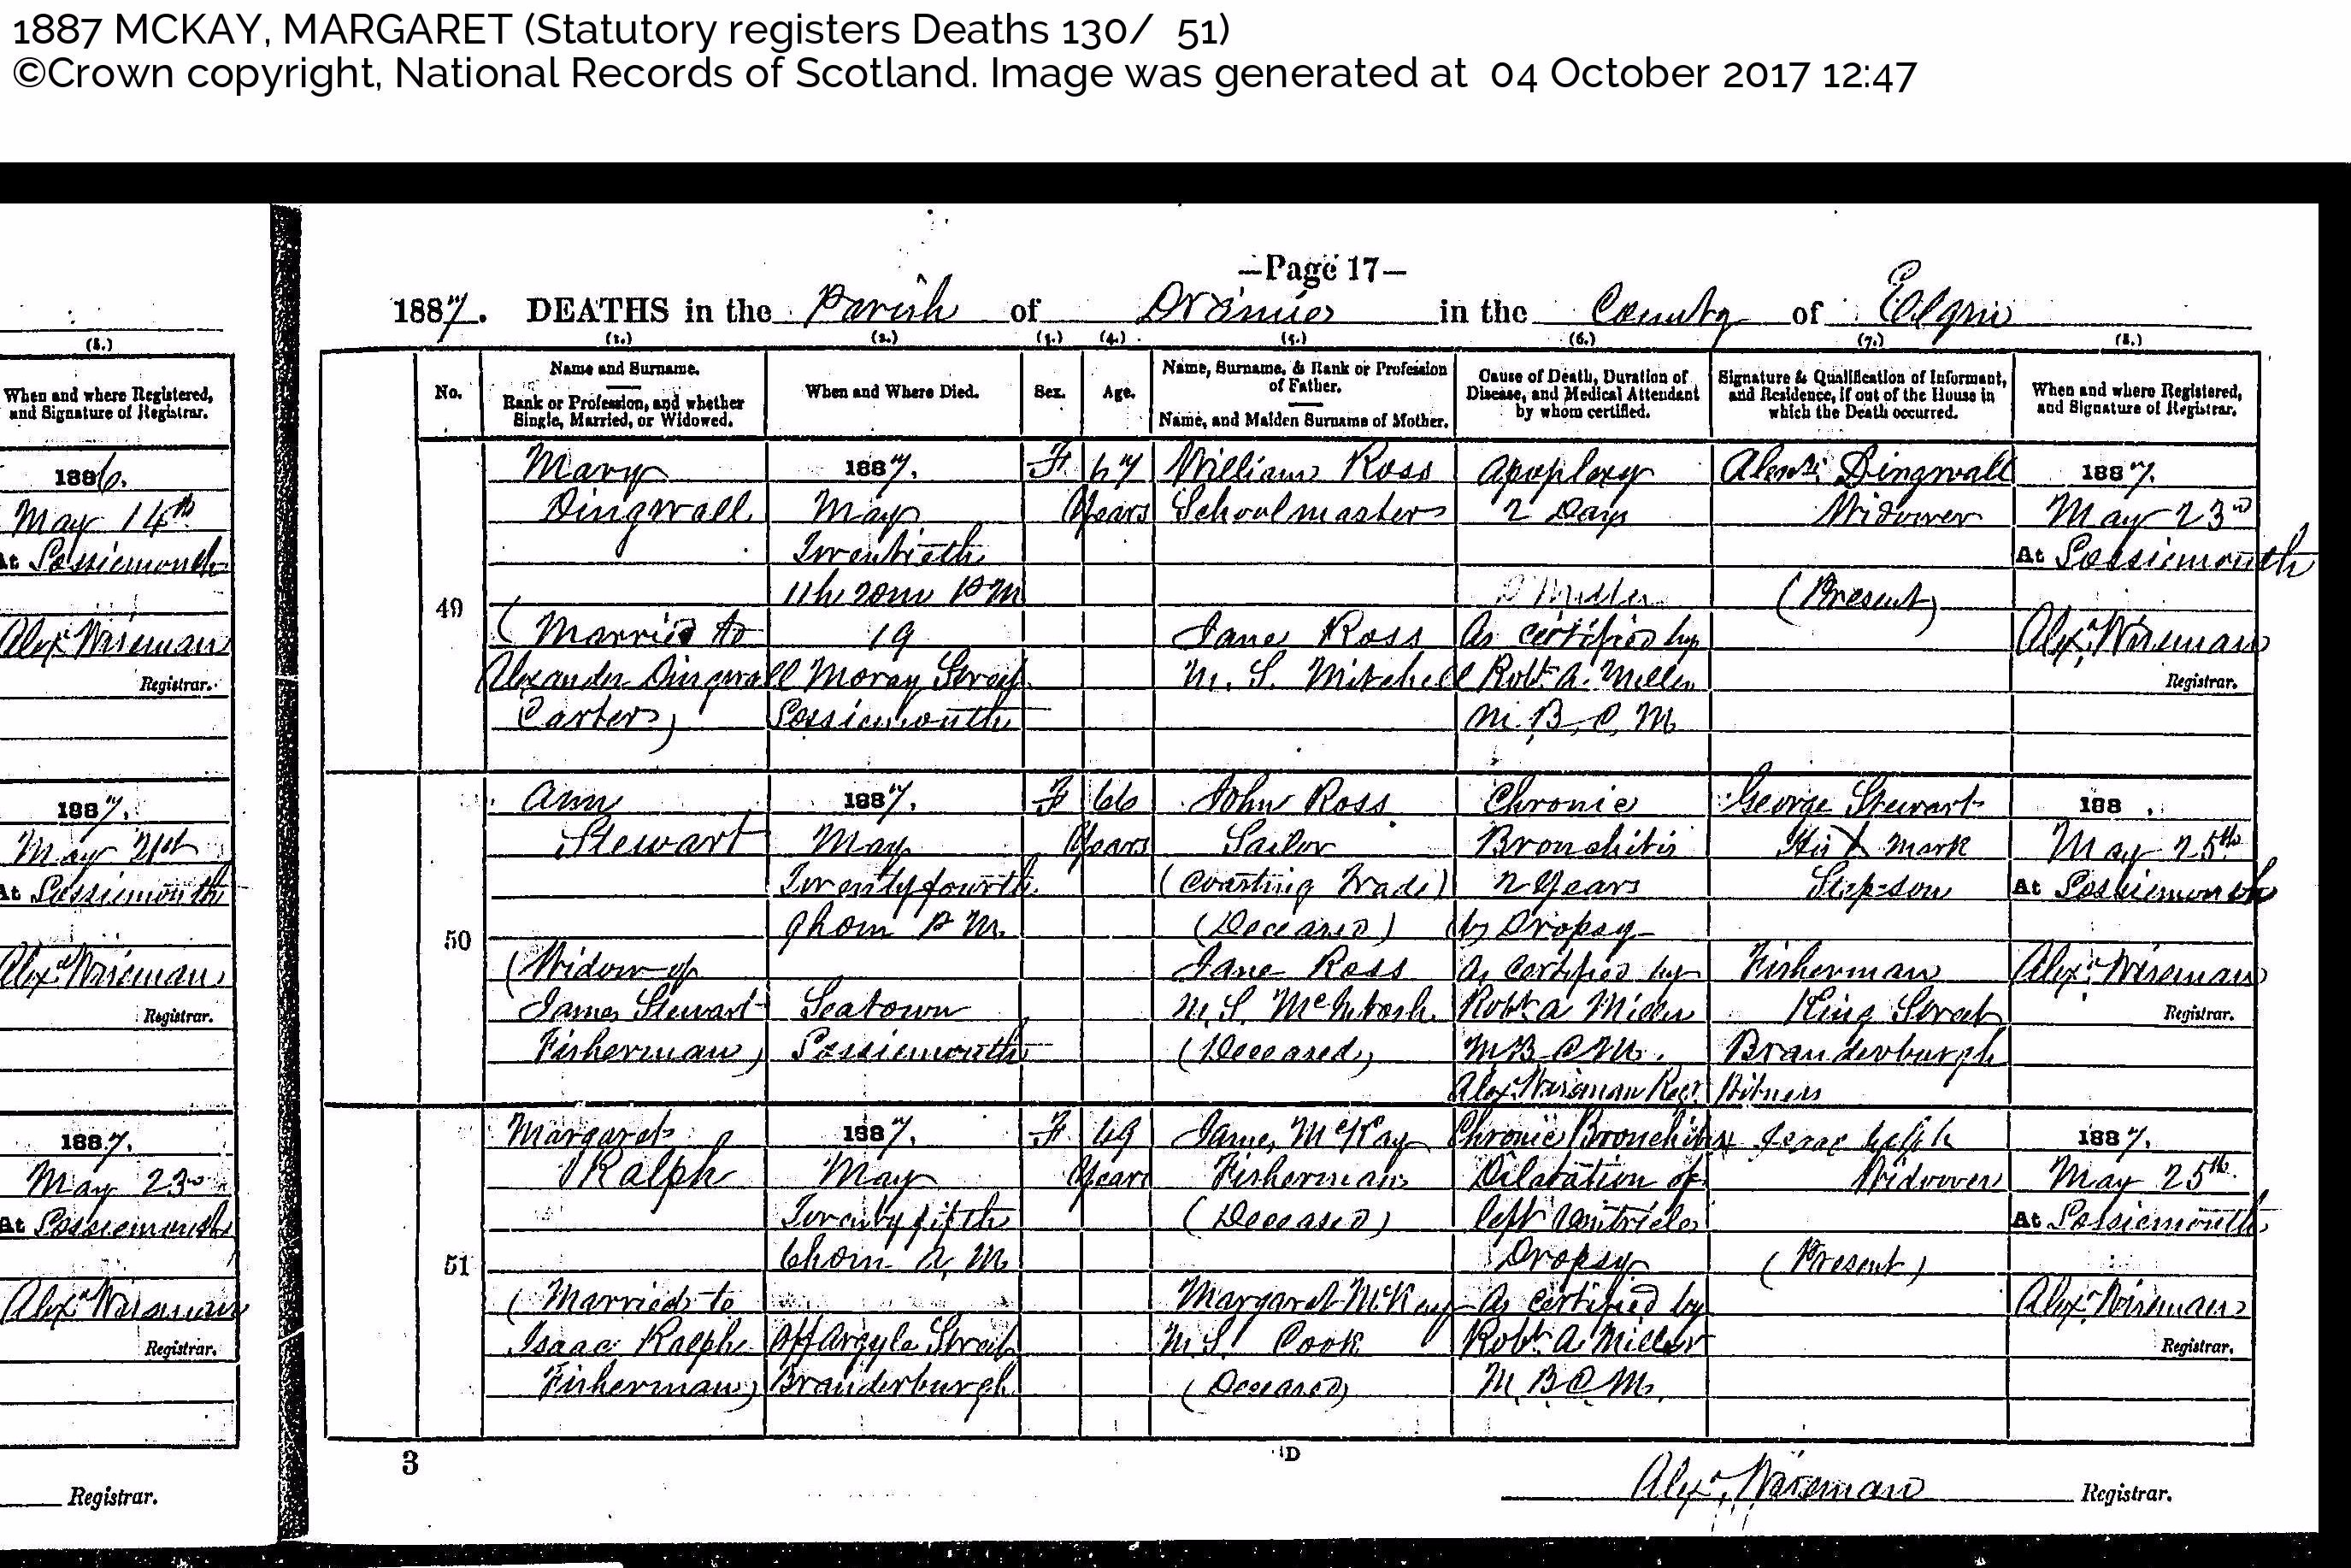 1887 MCKAY, MARGARET (Statutory registers Deaths 130/ 51)
©Crown copyright, National Records of Scotland. Image was generated at 04 October 2017 12:47
(8.)
When and where Registered,
and Signature of Registrar.
1886.
May 14th
At Lossiemouth
Alexr Wiseman
Registrar.
1887.
May 21st
At Lossiemouth
Alexr Wiseman
Registrar.
1887.
May 23rd
At Lossiemouth
Alexr Wiseman
Registrar.
Registrar.
—Page 17—
1887. DEATHS in the Parish of Drainie in the County of Elgin
(1.) (2.) (3.) (4.) (5.) (6.) (7.) (8.)
No.
Name and Surname.
Rank or Profession, and whether
Single, Married, or Widowed.
When and Where Died.
Sex.
Age.
Name, Surname, & Rank or Profession
of Father.
Name, and Maiden Surname of Mother.
Cause of Death, Duration of
Disease, and Medical Attendant
by whom certified.
Signature & Qualification of Informant,
and Residence, if out of the House in
which the Death occurred.
When and where Registered,
and Signature of Registrar.
49
Mary
Dingwall
(Married to
Alexander Dingwall
Carter)
1887.
May
Twentieth
11h 20m P M
19
Moray Street
Lossiemouth
F
67
Years
William Ross
Schoolmaster
Jane Ross
M. S. Mitchell
Apoplexy
2 Days
As certified by
Robt A. Miller
M. B, C, M
Dingwall
Widower
(Present)
1887.
May 23rd
At Lossiemouth
Alexr Wiseman
Registrar.
50
Ann
Stewart
(Widow of
James Stewart
Fisherman)
1887.
May
Twenty fourth
9h 0m P M.
Seatown
Lossiemouth
F
66
Years
John Ross
Sailor
(Coasting Trade)
(Deceased)
Jane Ross
M. S. McIntosh
(Deceased)
Chronic
Bronchitis
2 Years
(b) Dropsy
As certified by
Robt A Miller
M B C M.
Alexr Wiseman Regr Witness
George Stewart
His X mark
Step-son
Fisherman
King Street
Branderburgh
188 .
May 25th
At Lossiemouth
Alexr Wiseman
Registrar.
51
Margaret
Ralph
(Married to
Isaac Ralph
Fisherman)
1887.
May
Twenty fifth
6h 0m A. M
Off Argyle Street
Branderburgh
F
49
Years
James McKay
Fisherman
(Deceased)
Margaret McKay
M. S. Cook
(Deceased)
Chronic Bronchitis
Dilatation of
left Ventricle
Dropsy
As certified by
Robt A Miller
M. B C M.
Isaac Ralph
Widower
(Present)
1887.
May 25th
At Lossiemouth
Alexr Wiseman
Registrar.
3
D
Alexr Wiseman Registrar.